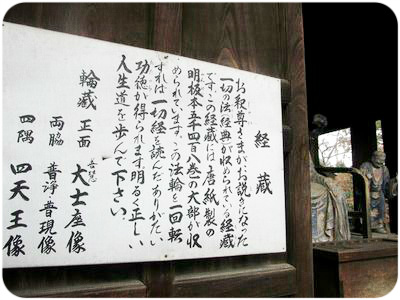 経蔵
お釈尊さまがお説きになった
一切の法経典が収められている経蔵
です。この経蔵には唐紙製の
明板本五千四百八巻の大部が収
められてます。この法輪を一回転
すれば一切経を読んだありがたい
功徳が得られます。明るく正しい
人生道を歩んで下さい。
輪蔵 正面 大士座像
両脇 普浄 普現像
四隅 四天王像